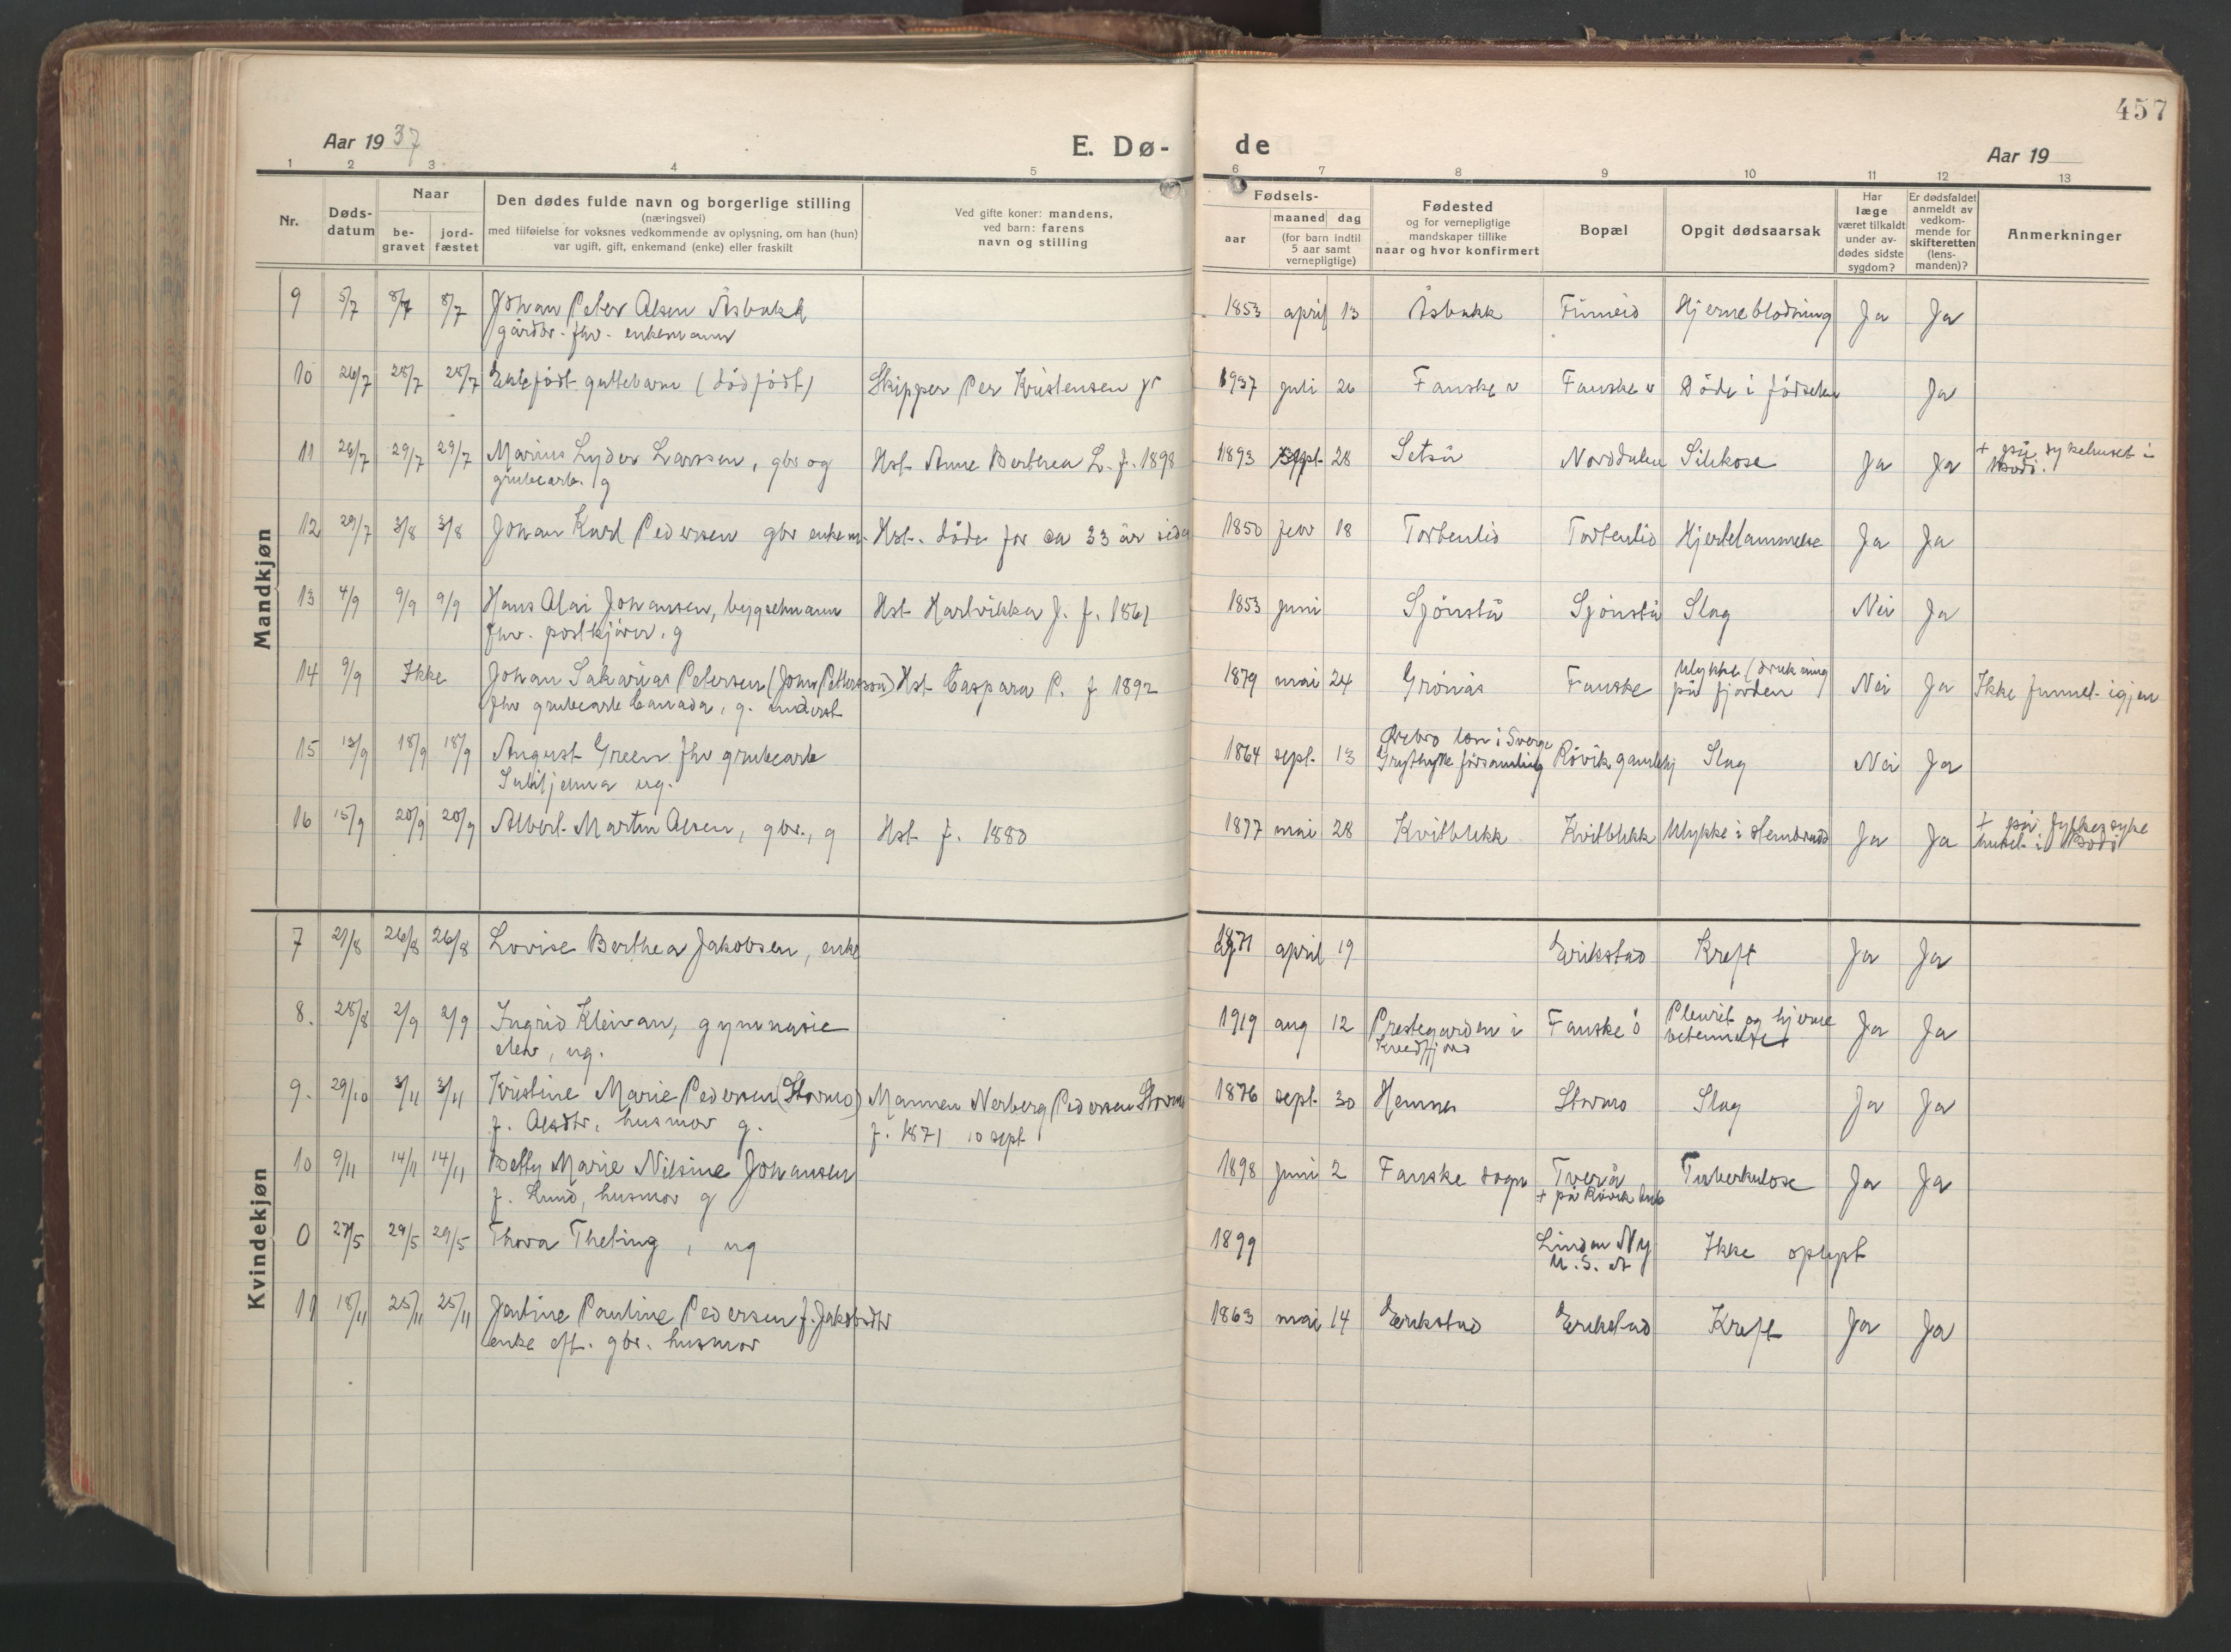 457
Aar 1937
E. Dø-
de
Aar 19
1 2 3 4 5 6 7 8 9 10 11 12 13
Nr.
Døds-
datum
Naar
be-
gravet
jord-
fæstet
Den dødes fulde navn og borgerlige stilling
(næringsvei)
med tilføielse for voksnes vedkommende av oplysning, om han (hun)
var ugift, gift, enkemand (enke) eller fraskilt
Ved gifte koner: mandens,
ved barn: farens
navn og stilling
Fødsels-
aar
maaned dag
(for barn indtil
5 aar samt
vernepligtige)
Fødested
og for vernepligtige
mandskaper tillike
naar og hvor konfirmert
Bopæl
Opgit dødsaarsak
Har
læge
været tilkaldt
under av-
dødes sidste
sygdom?
Er dødsfaldet
anmeldt av
vedkom-
mende for
skifteretten
(lens-
manden)?
Anmerkninger
Mandkjøn
9 5/7 8/7 8/7 Johan Peter Olsen Åsbakk 1853 april 13 Åsbakk Finneid Hjerneblødning Ja Ja
gårdbr. fhv. enkemann
10 26/7 28/7 28/7 Ektefødt guttebarn (dødfødt) Skipper Per Kristensen jr 1937 juli 26 Fauske v Fauske v Døde i fødselen Ja
11 26/7 29/7 29/7 Marius Lyder Larssen, gbr og Hst. Anne Berthea L. f. 1898 1893 sept. 28 Setså Norddalen Silikose Ja Ja + på sykehuset i
grubearb. g Bodø.
12 29/7 3/8 3/8 Johan Karl Pedersen gbr enkem. Hst. døde for ca 33 år siden 1850 febr 18 Tortenlid Tortenlid Hjertelammelse Ja Ja
13 4/9 9/9 9/9 Hans Olai Johansen, bygselmann Hst Hartvikka J. f. 1861 1853 juni Sjönstå Sjönstå Slag Nei Ja
fhv. postkjører. g
14 9/9 Ikke Johan Sakarias Petersen (John Petterson) Hst Caspara P. f 1892 1879 mai 24 Grönås Fauske Ulykke (drukning Nei Ja Ikke funnet igjen
fhv grubearb Canada, g. på fjorden
15 13/9 18/9 18/9 August Green fhv grubearb 1864 sept. 13 Örebro len i Sverge Røvik gamlehj Slag Nei Ja
Sulitjelma ug. Grythytte församling
16 15/9 20/9 20/9 Albert Martin Olsen, gbr., g Hst f. 1880 1877 mai 28 Kvitblikk Kvitblikk Ulykke i stenbrudd Ja Ja + på fylkessyke
huset i Bodø
Kvindekjøn
7 21/8 26/8 26/8 Lovise Berthea Jakobsen, enke 1871 april 19 Erikstad Kreft Ja Ja
8. 28/8 2/9 2/9 Ingrid Kleivan, gymnasie 1919 aug 12 Prestegarden i Fauske ö Pleurit og hjerne Ja Ja
elev, ug. betennelse
9. 29/10 3/11 3/11 Kristine Marie Pedersen (Stormo) Mannen Nerberg Pedersen Stormo 1876 sept. 30 Hemnes Stormo Slag Ja Ja
f. Olsdtr, husmor g. f. 1871 10 sept
10 9/11 14/11 14/11 Betty Marie Nilsine Johansen 1898 juni 2 Fauske sogn Tverå Tuberkulose Ja Ja
f. Lund, husmor g + på Røvik
0 27/5 29/5 29/5 Thora Theting, ug 1899 Linden N.y Ikke oplyst
U.S.A
11 18/11 25/11 25/11 Jentine Pauline Pedersen f. Jakobsdtr 1863 mai 14 Erikstad Erikstad Kreft Ja Ja
enke eft. gbr. husmor